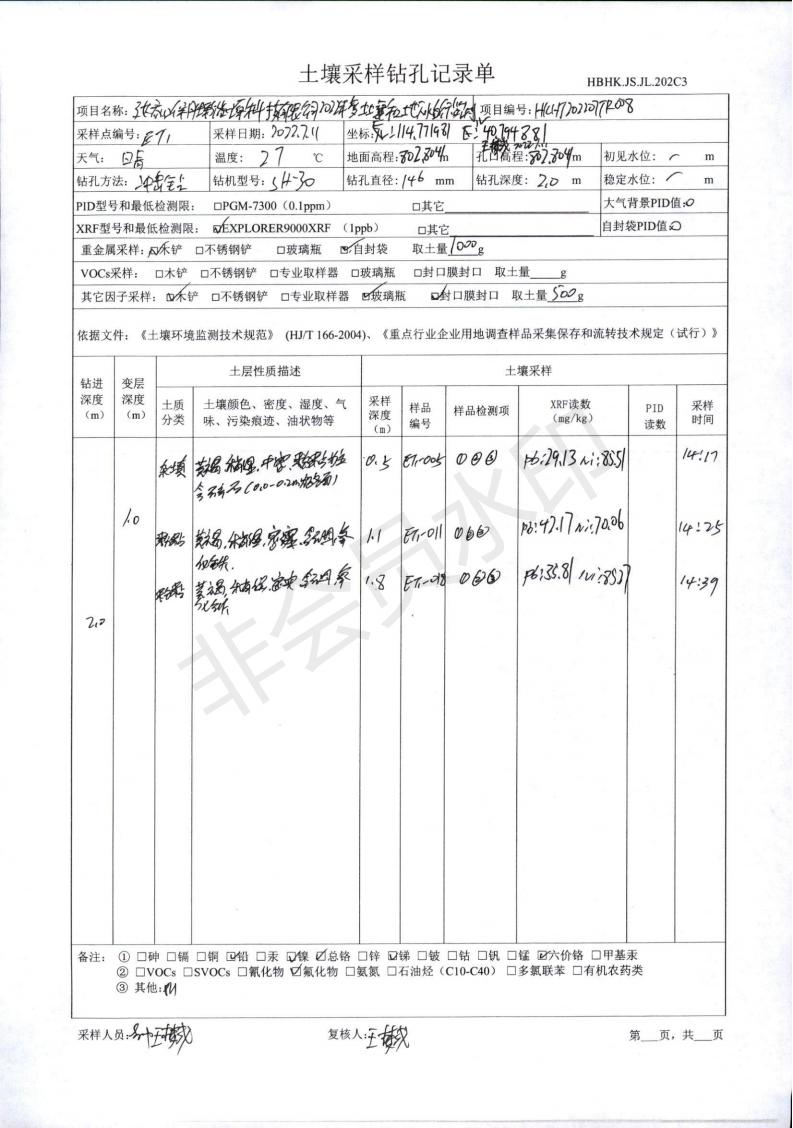 土壤采样钻孔记录单
HBHK.JS.JL.202C3
项目名称： 项目编号：
采样点编号：ET1 采样日期：2022.7.11 坐标：
天气： 温度：27 ℃ 地面高程：802.804m 孔口高程：802.804m 初见水位：— m
钻孔方法：冲击钻 钻机型号：SH-30 钻孔直径：146 mm 钻孔深度：2.0 m 稳定水位：— m
PID型号和最低检测限： □PGM-7300（0.1ppm） □其它 大气背景PID值：0
XRF型号和最低检测限： ☑EXPLORER9000XRF （1ppb） □其它 自封袋PID值：0
重金属采样：☑木铲 □不锈钢铲 □玻璃瓶 ☑自封袋 取土量1000g
VOCs采样： □木铲 □不锈钢铲 □专业取样器 □玻璃瓶 □封口膜封口 取土量____g
其它因子采样：☑木铲 □不锈钢铲 □专业取样器 ☑玻璃瓶 ☑封口膜封口 取土量500g
依据文件：《土壤环境监测技术规范》 (HJ/T 166-2004)、《重点行业企业用地调查样品采集保存和流转技术规定（试行）》
钻进深度（m） 变层深度（m） 土层性质描述 土壤采样
土质分类 土壤颜色、密度、湿度、气味、污染痕迹、油状物等 采样深度（m） 样品编号 样品检测项 XRF读数（mg/kg） PID读数 采样时间
杂填 黄褐,稍湿,中密, 0.5 ET1-005 ①②③ Pb:29.13 Ni:85.51 14:17
1.0
粉黏 黄褐,稍湿,密实, 1.1 ET1-011 ①②③ Pb:47.17 Ni:70.06 14:25
粉黏 黄褐,稍湿,密实, 1.8 ET1-018 ①②③ Pb:35.81 Ni:85.27 14:39
2.0
非会员水印
备注： ① □砷 □镉 □铜 ☑铅 □汞 ☑镍 ☑总铬 □锌 ☑锑 □铍 □钴 □钒 □锰 ☑六价铬 □甲基汞
② □VOCs □SVOCs □氰化物 ☑氟化物 □氨氮 □石油烃（C10-C40） □多氯联苯 □有机农药类
③ 其他：pH
采样人员： 复核人： 第___页，共___页